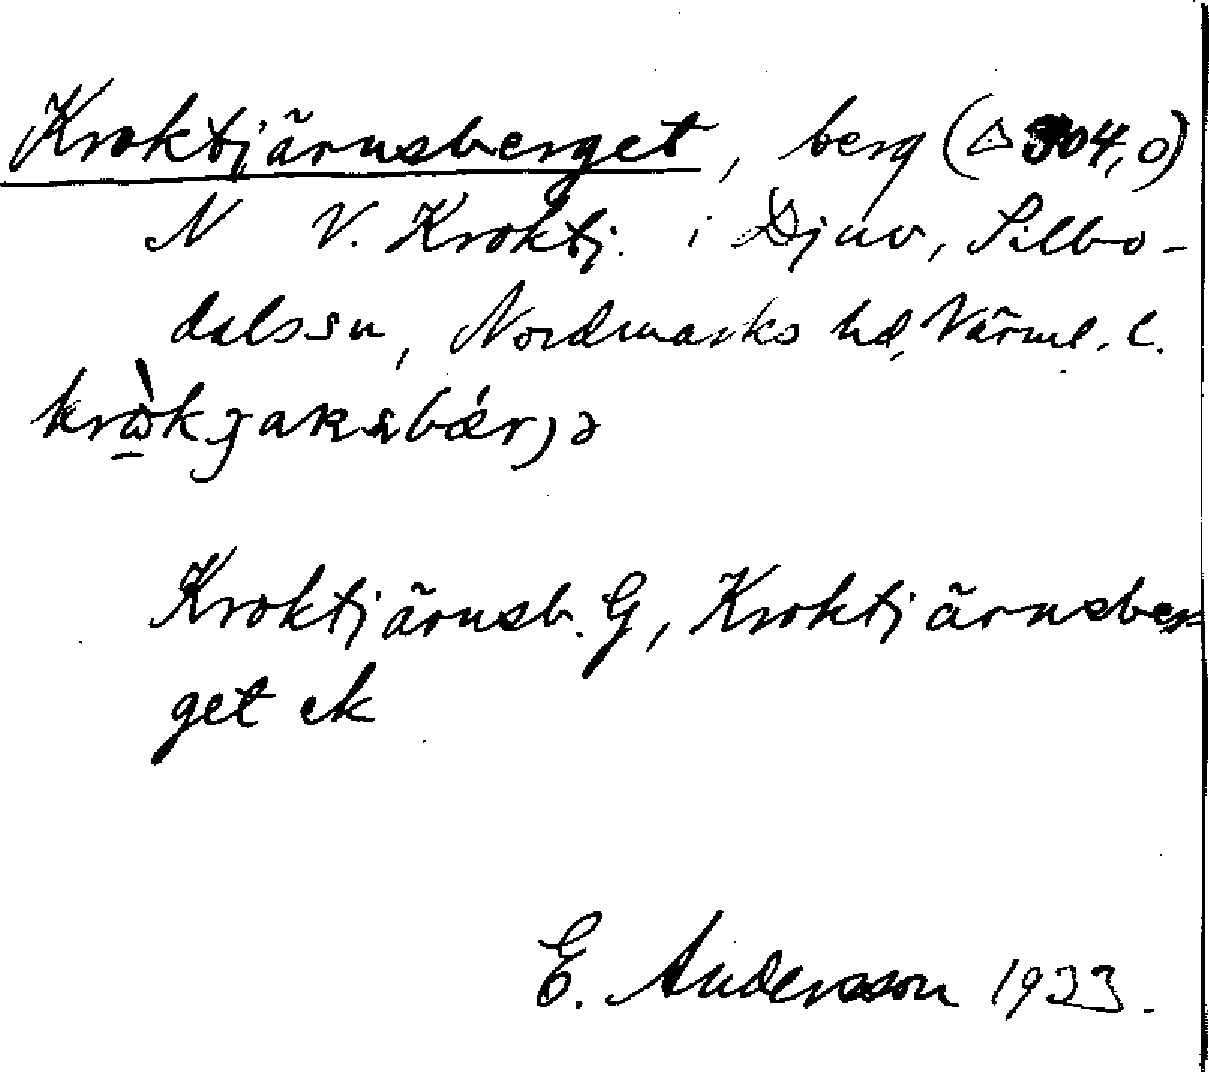 Kroktjärnsberget, berg (△ 304,0)
N V. Kroktj. i Djuv, Silbo-
dals sn, Nordmarks hd, Värml. l.
Kroktjärnsb. G, Kroktjärnsber-
get ek
E. Andersson 1923.